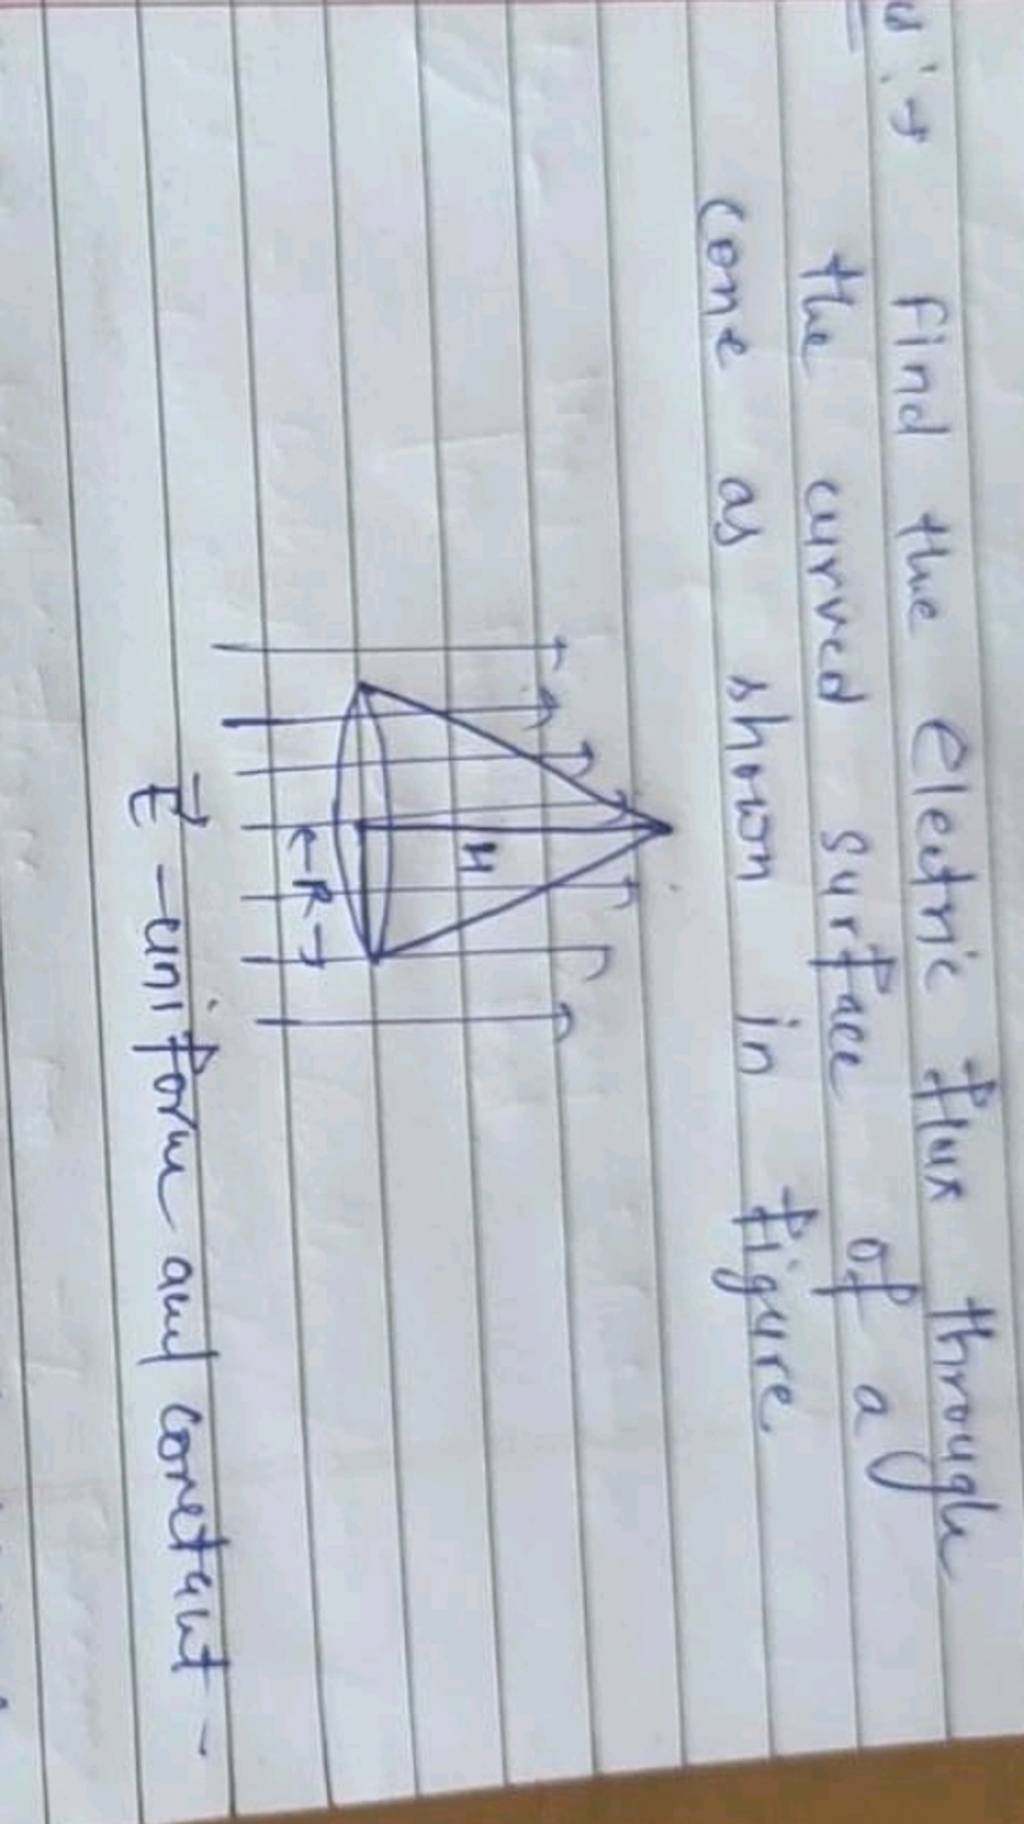 Find the electric flux through
the curved surface of a
cone as shown in figure
H
←R→
E⃗ - uniform and constant -